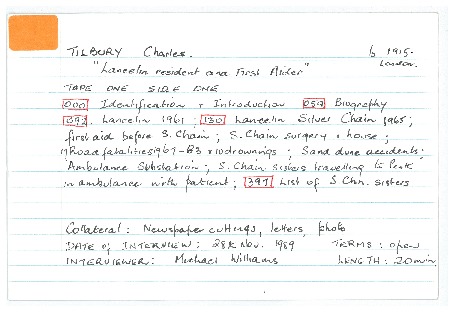 TILBURY Charles. b 1915-
London.
"Lancelin resident and First Aider"
TAPE ONE SIDE ONE
000 Identification + Introduction 059 Biography
092 Lancelin 1961; 130 Lancelin Silver Chain 1965;
first aid before S.Chain; S.Chain surgery + house;
17 Road fatalities 1967-83 + 10 drownings; Sand dune accidents;
Ambulance Substation; S.Chain sisters travelling to Perth
in ambulance with patient; 397 List of S Chn. sisters
Collateral: Newspaper cuttings, letters, photo
DATE of INTERVIEW: 28th Nov. 1989 TERMS: open
INTERVIEWER: Michael Williams LENGTH: 20min